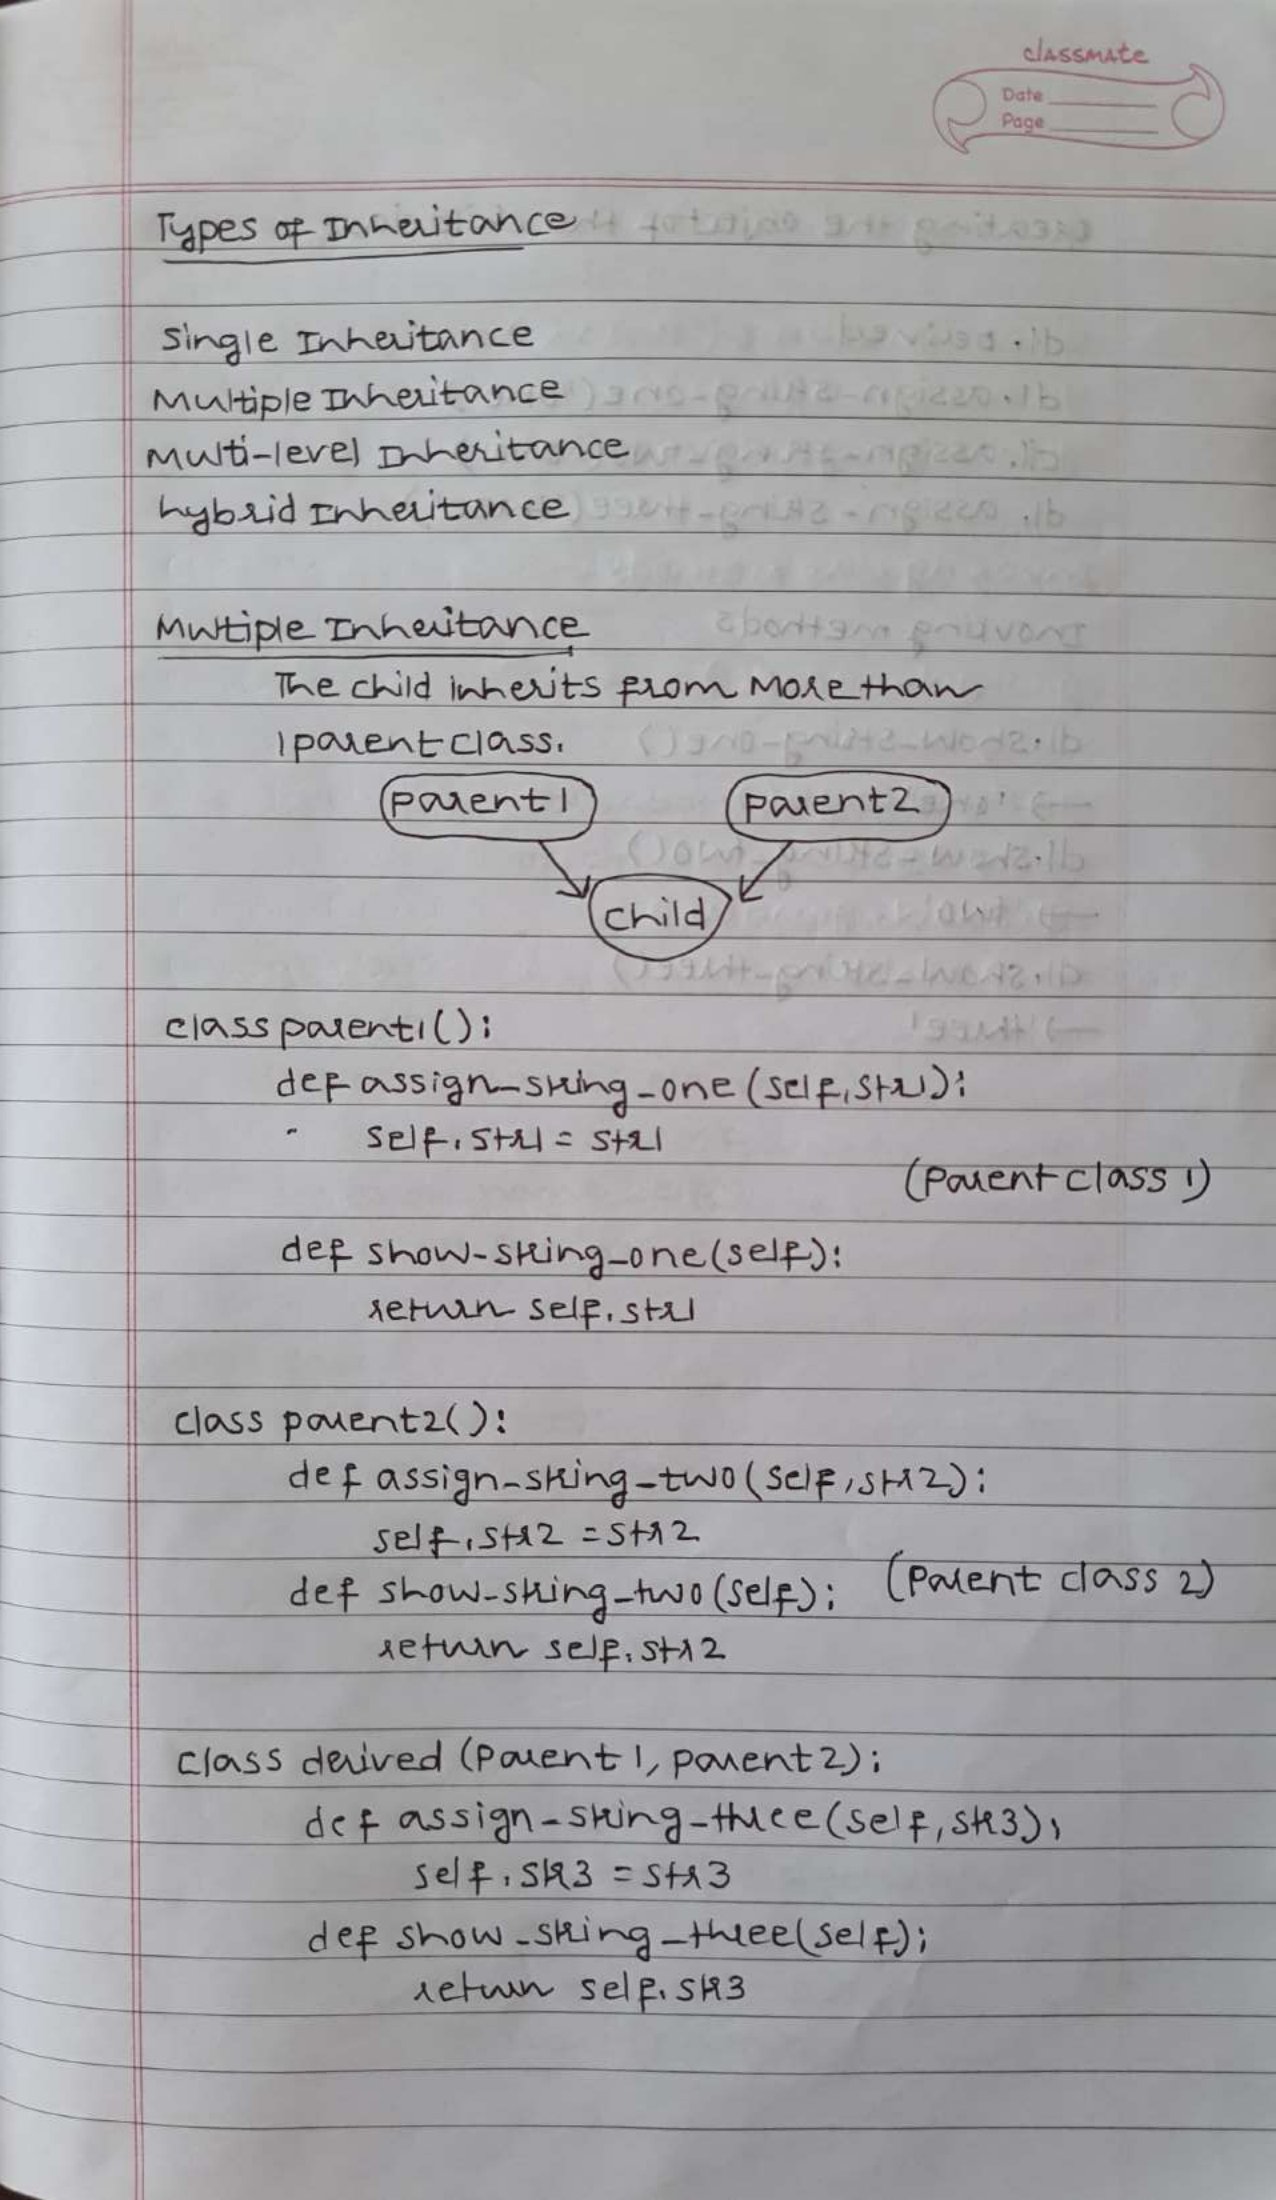 classmate
Date
Page
Types of Inheritance
Single Inheritance
Multiple Inheritance
Multi-level Inheritance
hybrid Inheritance
Multiple Inheritance
The child inherits from More than
1 parent class.
parent1 parent2
child
class parent1():
def assign_string_one (self, str1):
self.str1 = str1
(Parent class 1)
def show_string_one(self):
return self.str1
class parent2():
def assign_string_two (self, str2):
self.str2 = str2
def show_string_two (self): (Parent class 2)
return self.str2
class derived (Parent1, parent2):
def assign_string_three (self, str3):
self.str3 = str3
def show_string_three(self):
return self.str3